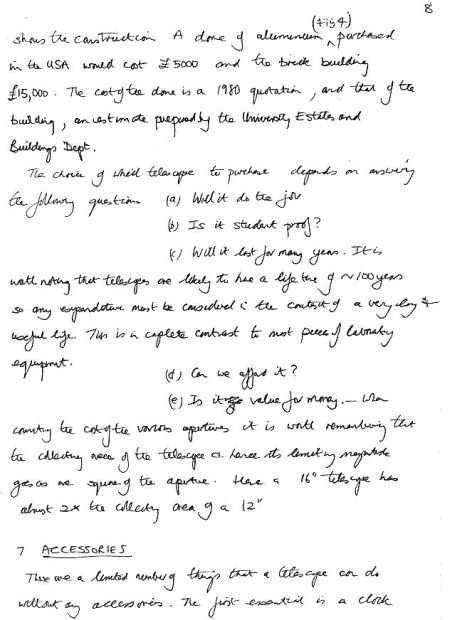 8
(Fig 4)
shows the construction A dome of aluminium ^ purchased
in the USA would cost £5000 and the brick building
£15,000. The cost of the dome is a 1980 quotation, and that of the
building, an estimate prepared by the University Estates and
Buildings Dept.
The choice of which telescope to purchase depends on answering
the following questions (a) Will it do the job
(b) Is it student proof?
(c) Will it last for many years. It is
worth noting that telescopes are likely to have a life time of ~100 years
so any expenditure must be considered in the context of a very long &
useful life. This is in complete contrast to most pieces of laboratory
equipment.
(d) Can we afford it?
(e) Is it value for money. — When
counting the cost of the various apertures it is worth remembering that
the collecting area of the telescope & hence its limiting magnitude
goes as the square of the aperture. Hence a 16" telescope has
almost 2x the collecting area of a 12"
7 ACCESSORIES
There are a limited number of things that a telescope can do
without any accessories. The first essential is a clock